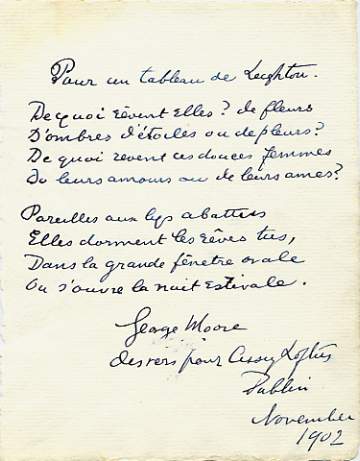 Pour un tableau de Leighton.
De quoi rêvent elles? de fleurs
D'ombres d'étoiles ou de pleurs?
De quoi revent ces douces femmes
De leurs amours ou de leurs ames?
Pareilles aux lys abattus
Elles dorment les rêves tus,
Dans la grande fênetre ovale
Ou s'ouvre la nuit estivale.
George Moore
des vers pour Cissy Loftus
Dublin
November
1902